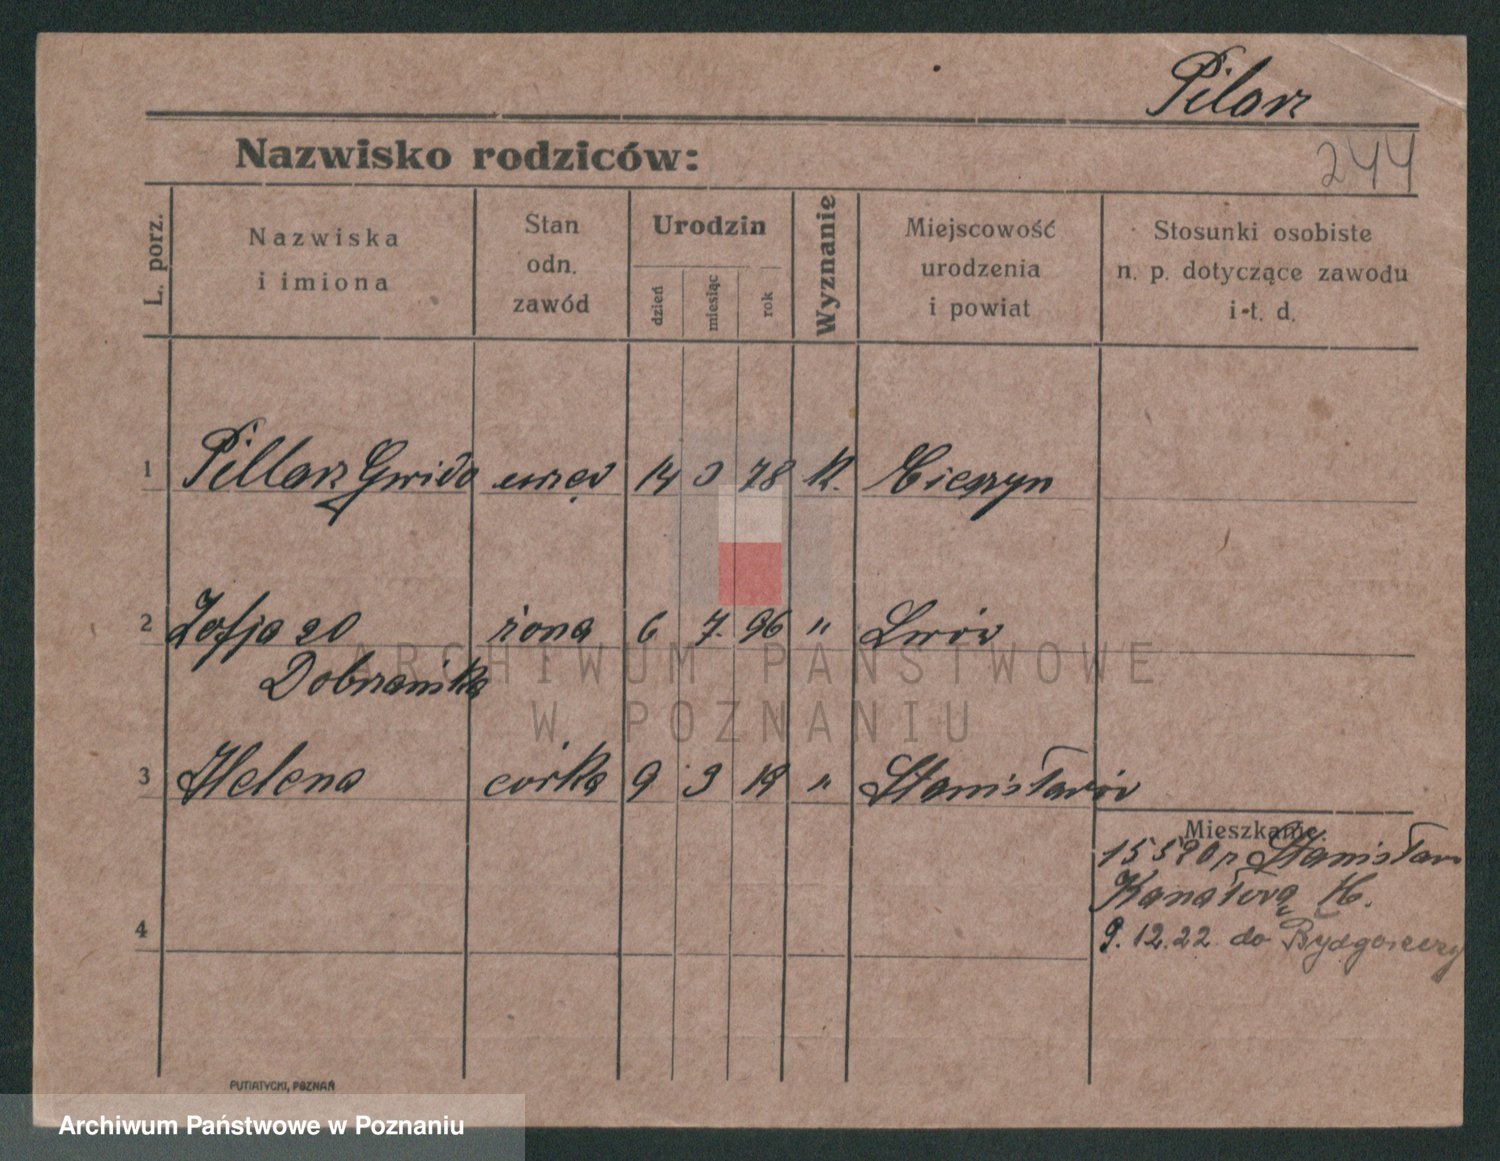 Pilarz
Nazwisko rodziców:
244
L. porz.
Nazwiska
i imiona
Stan
odn.
zawód
Urodzin
dzień
miesiąc
rok
Wyznanie
Miejscowość
urodzenia
i powiat
Stosunki osobiste
n. p. dotyczące zawodu
i t. d.
1 Pillarz Gwido urzęd 14 3 78 k. Cieszyn
2 Zofja zd żona 6 7. 96 " Lwów
Dobrzanska
3 Helena córka 9 3 19 " Stanisławów
Mieszkanie.
15 5 20 r Stanisław
Kanałowa
9.12.22 do Bydgoszczy
4
PUTIATYCKI, POZNAŃ
ARCHIWUM PAŃSTWOWE
W POZNANIU
Archiwum Państwowe w Poznaniu